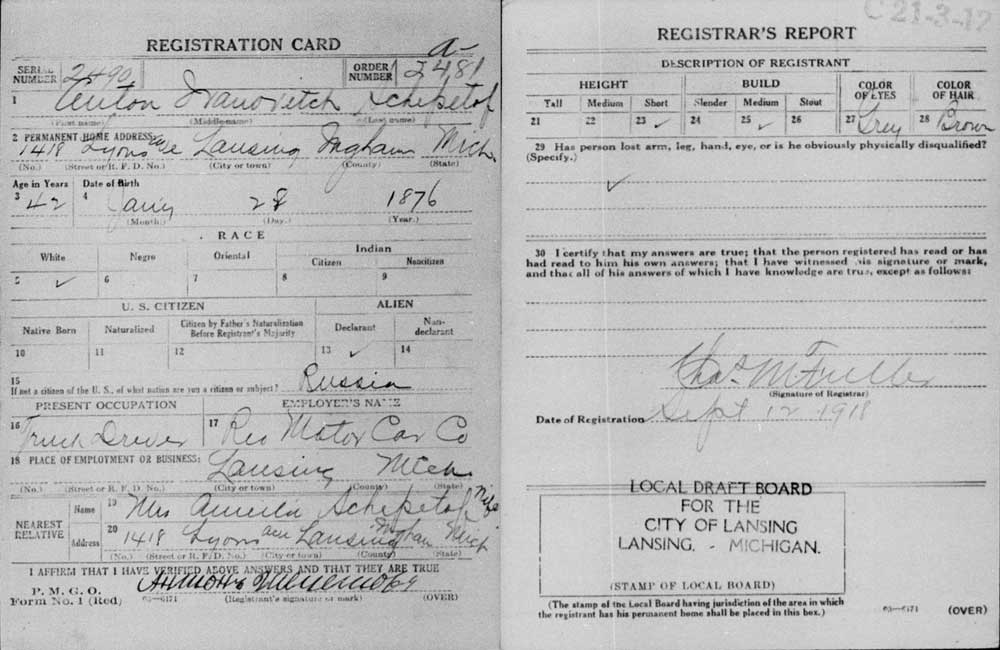 REGISTRATION CARD
A-
SERIAL NUMBER 2490
ORDER NUMBER 2481
1 Anton Ivanovitch Schepetof
(First name) (Middle name) (Last name)
2 PERMANENT HOME ADDRESS:
1418 Lyons ave Lansing Ingham Mich.
(No.) (Street or R. F. D. No.) (City or town) (County) (State)
Age in Years Date of Birth
3 42 4 Jany 28 1876
(Month.) (Day.) (Year.)
RACE
White Negro Oriental Indian
Citizen Noncitizen
5 ✓ 6 7 8 9
U. S. CITIZEN ALIEN
Native Born Naturalized Citizen by Father's Naturalization Before Registrant's Majority Declarant Non-declarant
10 11 12 13 ✓ 14
15
If not a citizen of the U. S., of what nation are you a citizen or subject? Russia
PRESENT OCCUPATION EMPLOYER'S NAME
16 Truck Driver 17 Reo Motor Car Co
18 PLACE OF EMPLOYMENT OR BUSINESS:
Lansing Mich
(No.) (Street or R. F. D. No.) (City or town) (County) (State)
NEAREST RELATIVE Name 19 Mrs Schepetof Wife
Address 20 1418 Lyons ave Lansing Ingham Mich
(No.) (Street or R. F. D. No.) (City or town) (County) (State)
I AFFIRM THAT I HAVE VERIFIED ABOVE ANSWERS AND THAT THEY ARE TRUE
P. M. G. O.
Form No. 1 (Red) 03—6171 (Registrant's signature or mark) (OVER)
C 21-3-17
REGISTRAR'S REPORT
DESCRIPTION OF REGISTRANT
HEIGHT BUILD COLOR OF EYES COLOR OF HAIR
Tall Medium Short Slender Medium Stout
21 22 23 ✓ 24 25 ✓ 26 27 Grey 28 Brown
29 Has person lost arm, leg, hand, eye, or is he obviously physically disqualified?
(Specify.)
✓
30 I certify that my answers are true; that the person registered has read or has
had read to him his own answers; that I have witnessed his signature or mark,
and that all of his answers of which I have knowledge are true, except as follows:
Chas. M Fuller
(Signature of Registrar)
Date of Registration Sept 12 1918
LOCAL DRAFT BOARD
FOR THE
CITY OF LANSING
LANSING, - MICHIGAN.
(STAMP OF LOCAL BOARD)
(The stamp of the Local Board having jurisdiction of the area in which
the registrant has his permanent home shall be placed in this box.)
03—6171 (OVER)